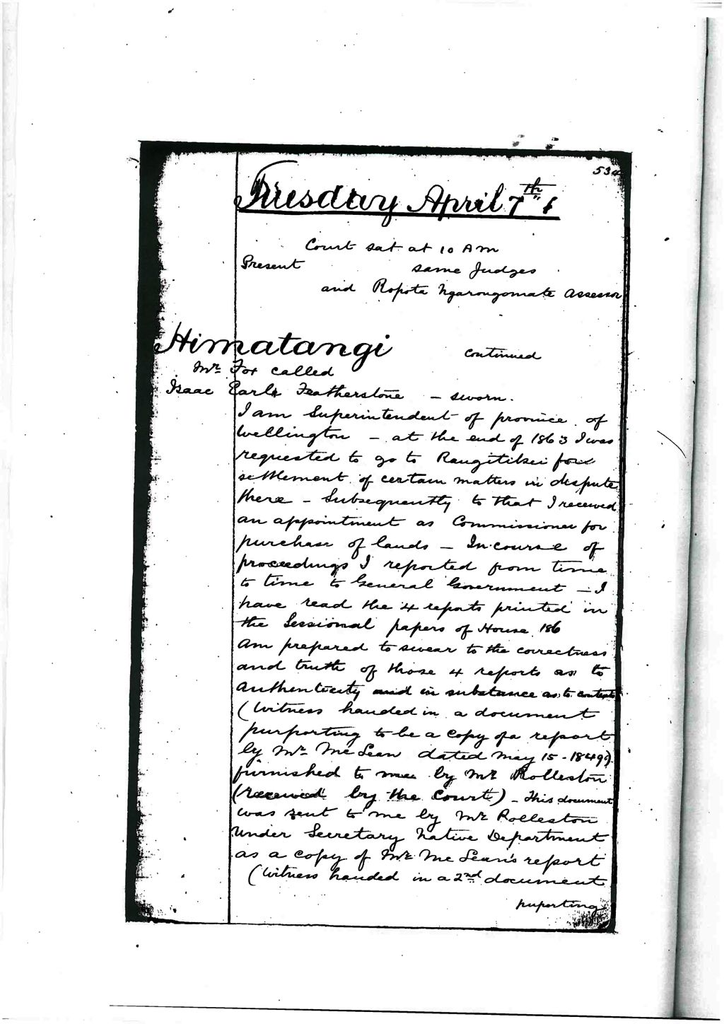 534
Tuesday April 7th
Court sat at 10 Am
Present same Judges
and Ropota Ngarongomate Assessor
Himatangi continued
Mr Fox called
Isaac Earle Featherstone - sworn.
I am Superintendent of province of
Wellington - at the end of 1863 I was
requested to go to Rangitikei for
settlement of certain matters in dispute
there - Subsequently to that I received
an appointment as Commissioner for
purchase of lands - In course of
proceedings I reported from time
to time to General Government - I
have read the 4 reports printed in
the Sessional papers of House 186
am prepared to swear to the correctness
and truth of those 4 reports as to
authenticity and in substance as to
(Witness handed in a document
purporting to be a copy of a report
by Mr McLean dated May 15 - 1849)
furnished to me by Mr Rolleston
(received by the Court) - This document
was sent to me by Mr Rolleston
Under Secretary Native Department
as a copy of Mr McLean's report
(Witness handed in a 2nd document
puporting